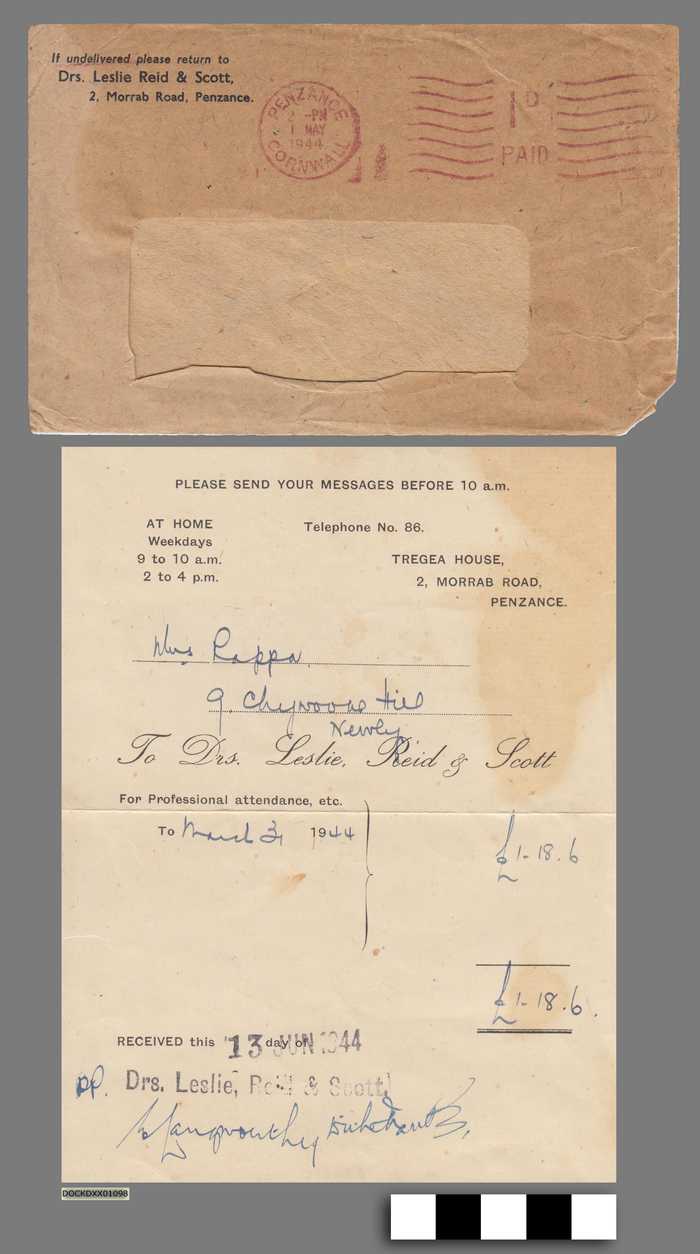 If undelivered please return to
Drs. Leslie Reid & Scott,
2, Morrab Road, Penzance.
PENZANCE
2 -PM
1 MAY
1944
CORNWALL
1D
PAID
PLEASE SEND YOUR MESSAGES BEFORE 10 a.m.
AT HOME
Weekdays
9 to 10 a.m.
2 to 4 p.m.
Telephone No. 86.
TREGEA HOUSE,
2, MORRAB ROAD,
PENZANCE.
Mrs Pappa
9. Chywoone Hill
Newlyn
To Drs. Leslie, Reid & Scott
For Professional attendance, etc.
To March 31 1944
£1-18.6
£1-18.6.
RECEIVED this 13 day of JUN 1944
pp. Drs. Leslie, Reid & Scott,
DOCKDXX01098